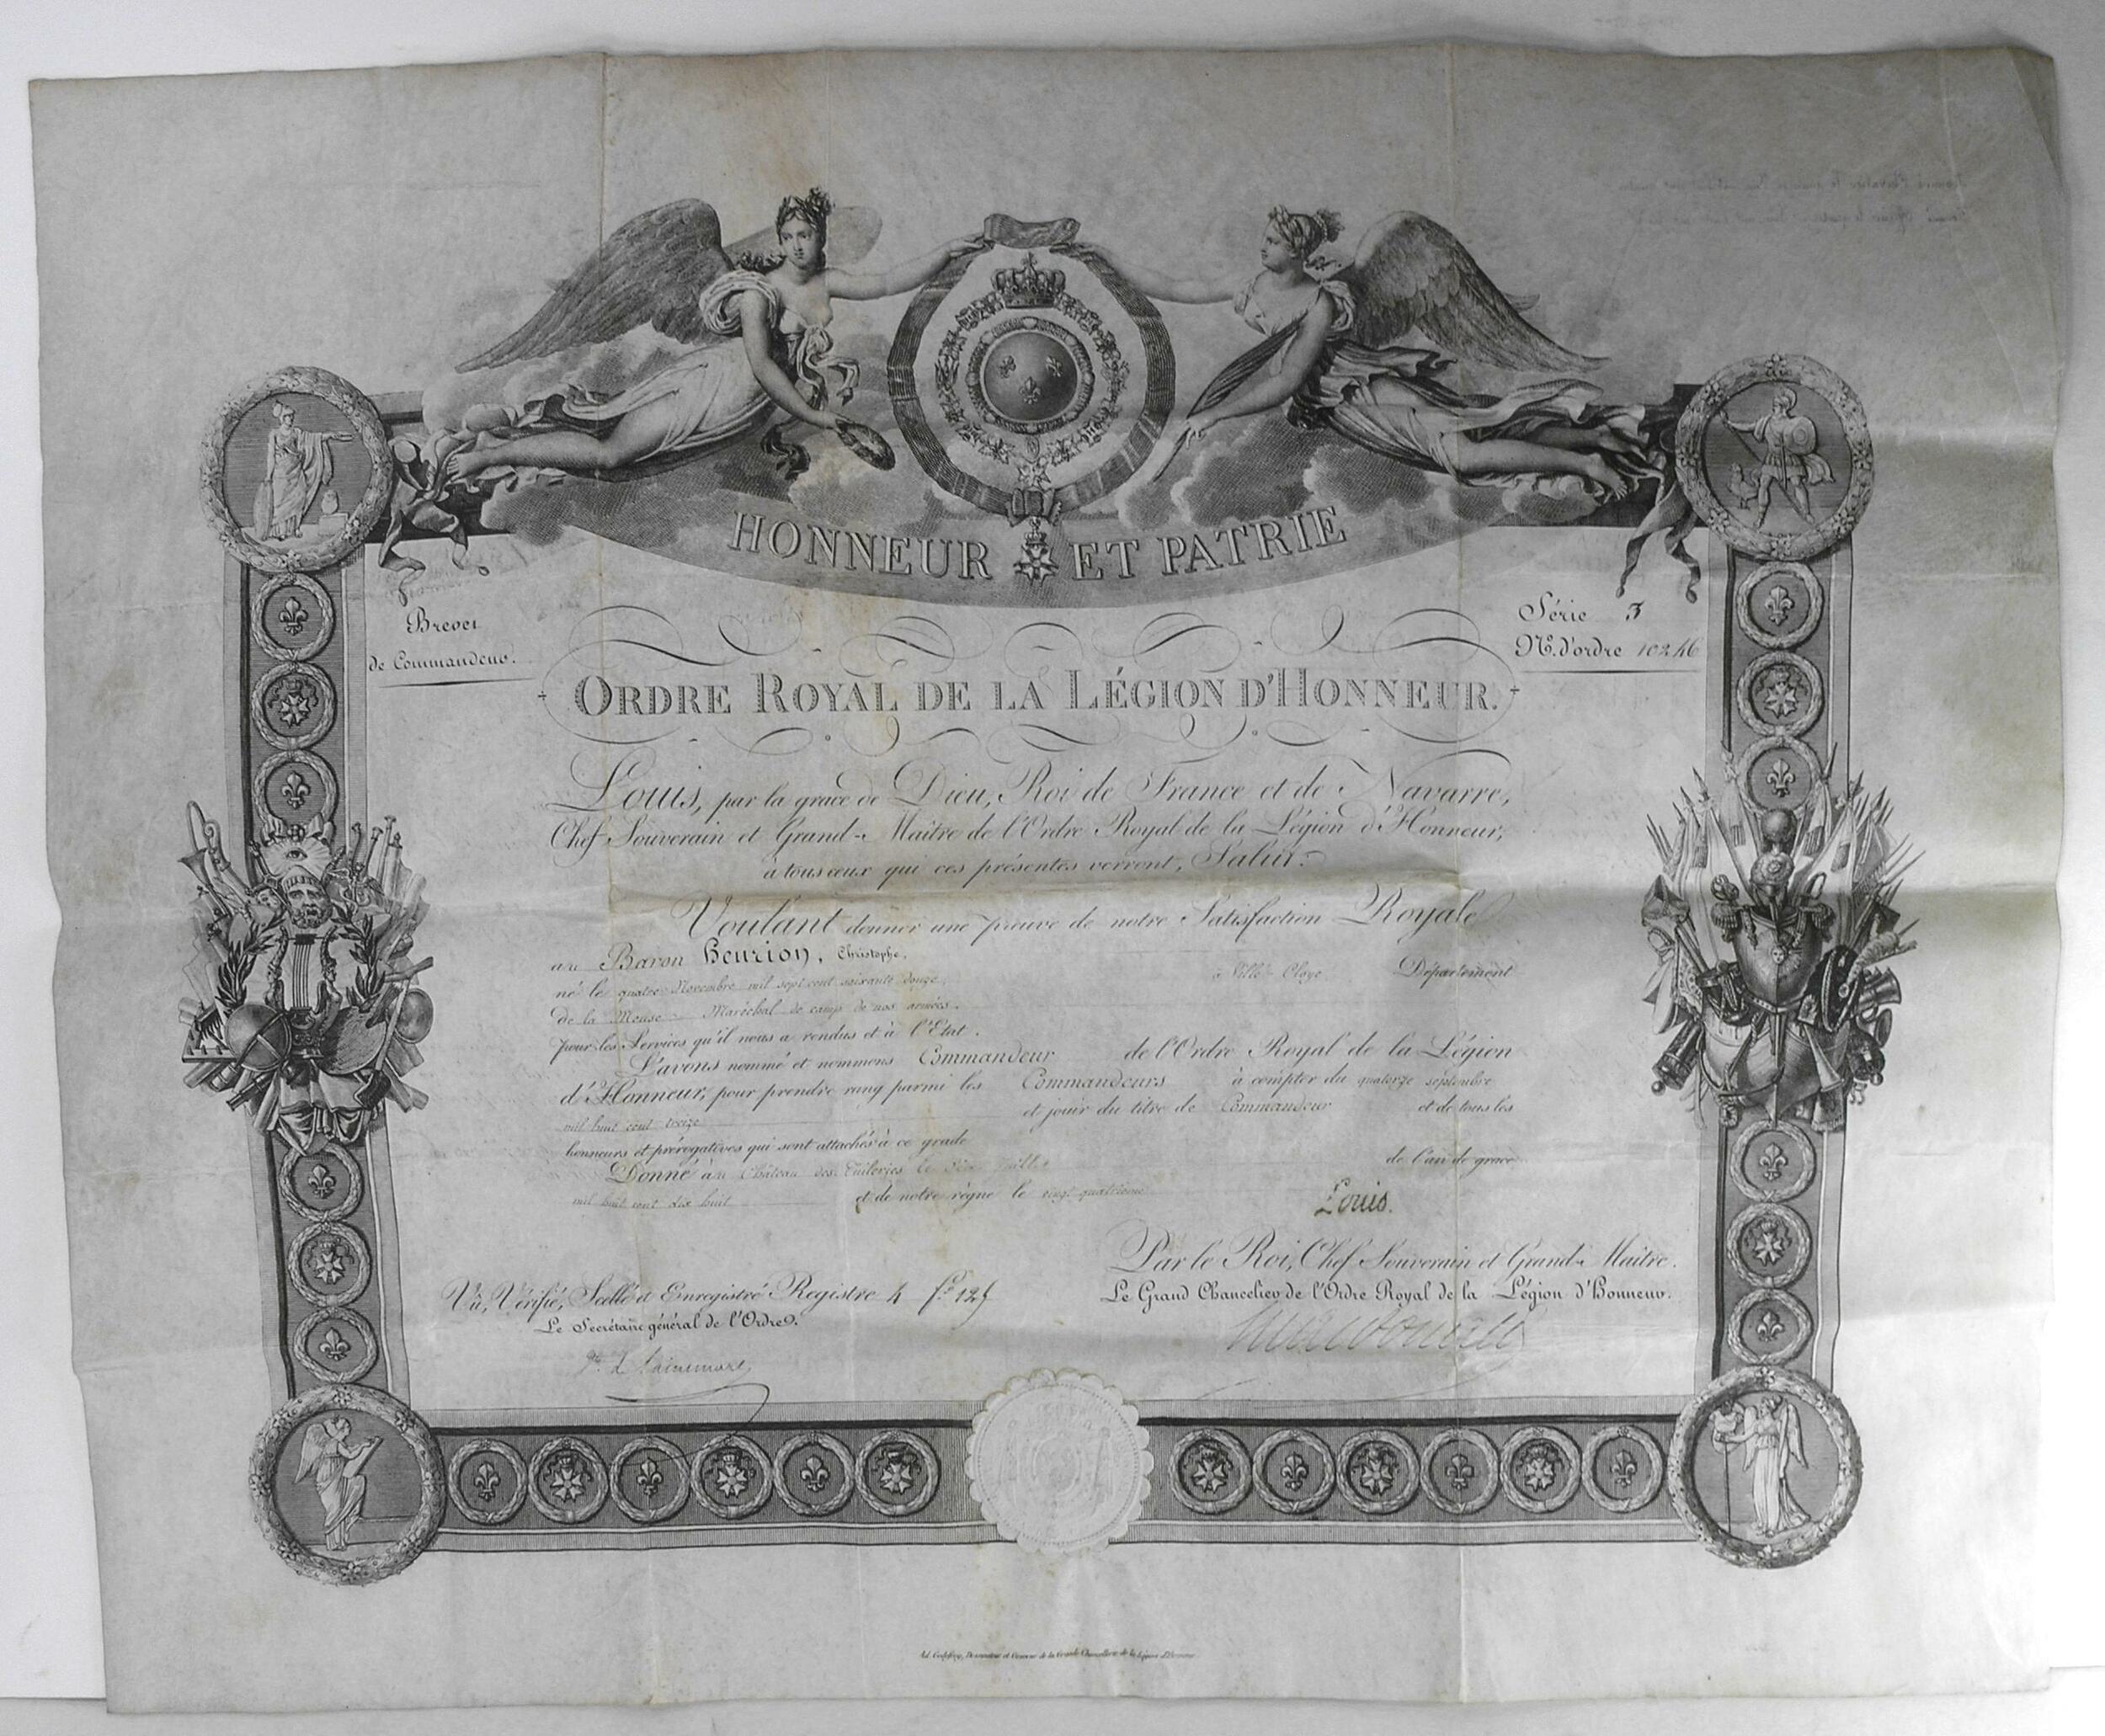 HONNEUR ET PATRIE
Brevet
de Commandeur.
Série 3
N.º d'ordre 10246
ORDRE ROYAL DE LA LÉGION D'HONNEUR.
Louis, par la grace de Dieu, Roi de France et de Navarre,
Chef Souverain et Grand-Maître de l'Ordre Royal de la Légion d'Honneur,
à tous ceux qui ces présentes verront, Salut.
Voulant donner une preuve de notre Satisfaction Royale
au Baron Henrion, Christophe,
né le quatre Novembre mil sept cent soixante douze, à Ville-Cloye Département
de la Meuse Maréchal de camp de nos armées.
pour les Services qu'il nous a rendus et à l'Etat.
L'avons nommé et nommons Commandeur de l'Ordre Royal de la Légion
d'Honneur, pour prendre rang parmi les Commandeurs à compter du quatorze septembre
mil huit cent treize et jouir du titre de Commandeur et de tous les
honneurs et prérogatives qui sont attachés à ce grade
Donné au Château des Tuileries le juillet de l'an de grace
mil huit cent dix huit et de notre règne le vingt quatrième
Louis.
Par le Roi, Chef Souverain et Grand-Maître.
Le Grand Chancelier de l'Ordre Royal de la Légion d'Honneur.
Macdonald
Vû, Vérifié, Scellé et Enregistré Registre 4 f.º 125
Le Secrétaire général de l'Ordre.
Ad. Godefroy, Dessinateur et Graveur de la Grande Chancellerie de la Légion d'Honneur